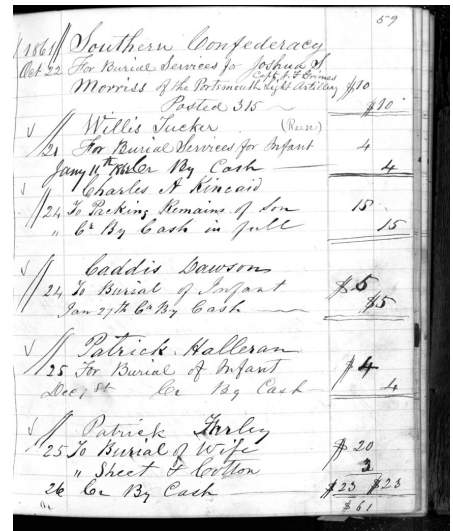 59
1861 Southern Confederacy
Oct 22 For Burial Services for Joshua S.
Capt. J. F. Grimes
Morriss of the Portsmouth Light Artillery $10
Posted 315 $10
Willis Tucker
21 For Burial Services for Infant 4
Jany 11th Cr By Cash 4
Charles A Kincaid
24 To Packing Remains of Son 15
" Cr By Cash in full 15
Caddis Dawson
24 To Burial of Infant $5
Jan 27th Cr By Cash $5
Patrick Halleran
25 For Burial of Infant $4
Dec 7 Cr By Cash 4
Patrick
25 To Burial of Wife $20
" Sheet & Cotton 3
26 Cr By Cash $23 $23
$61